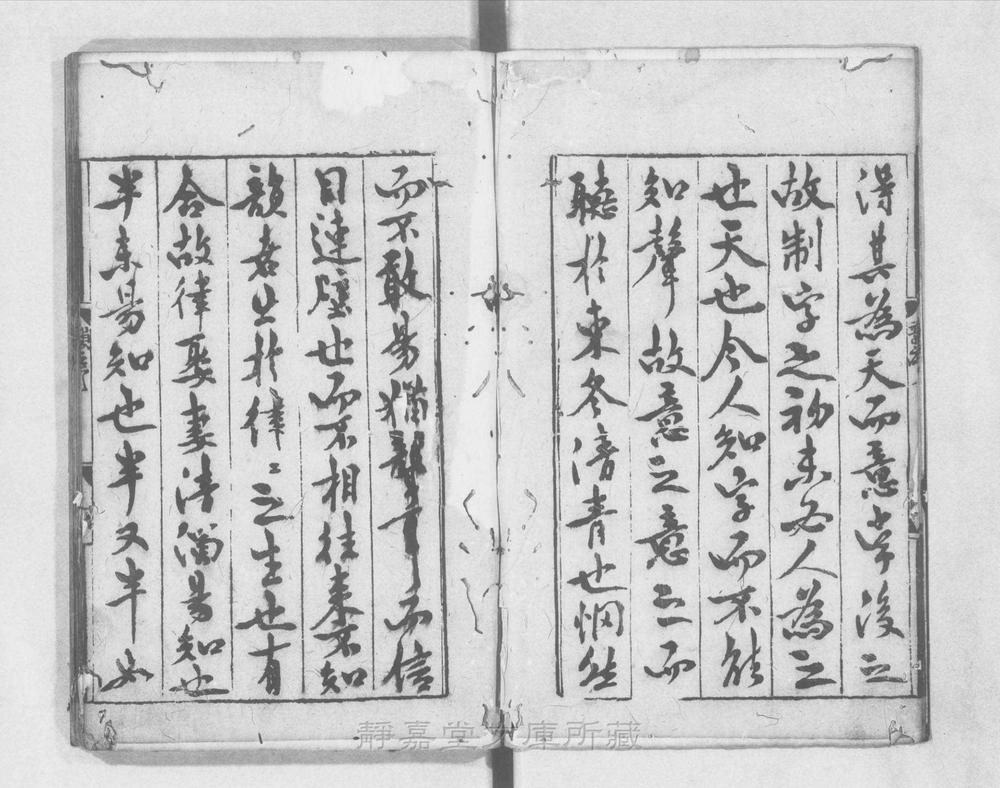 得其為天而意常後之
故制字之初未必人為之
也天也今人知字而不能
知聲故意之意之而
聽於東冬清青也惘然
而不敢易猶而信
目連壁也而不相往来不知
韻者上於律〻之生也有
合故律娶妻清濁易知也
半未易知也半又半如
靜嘉堂文庫所藏